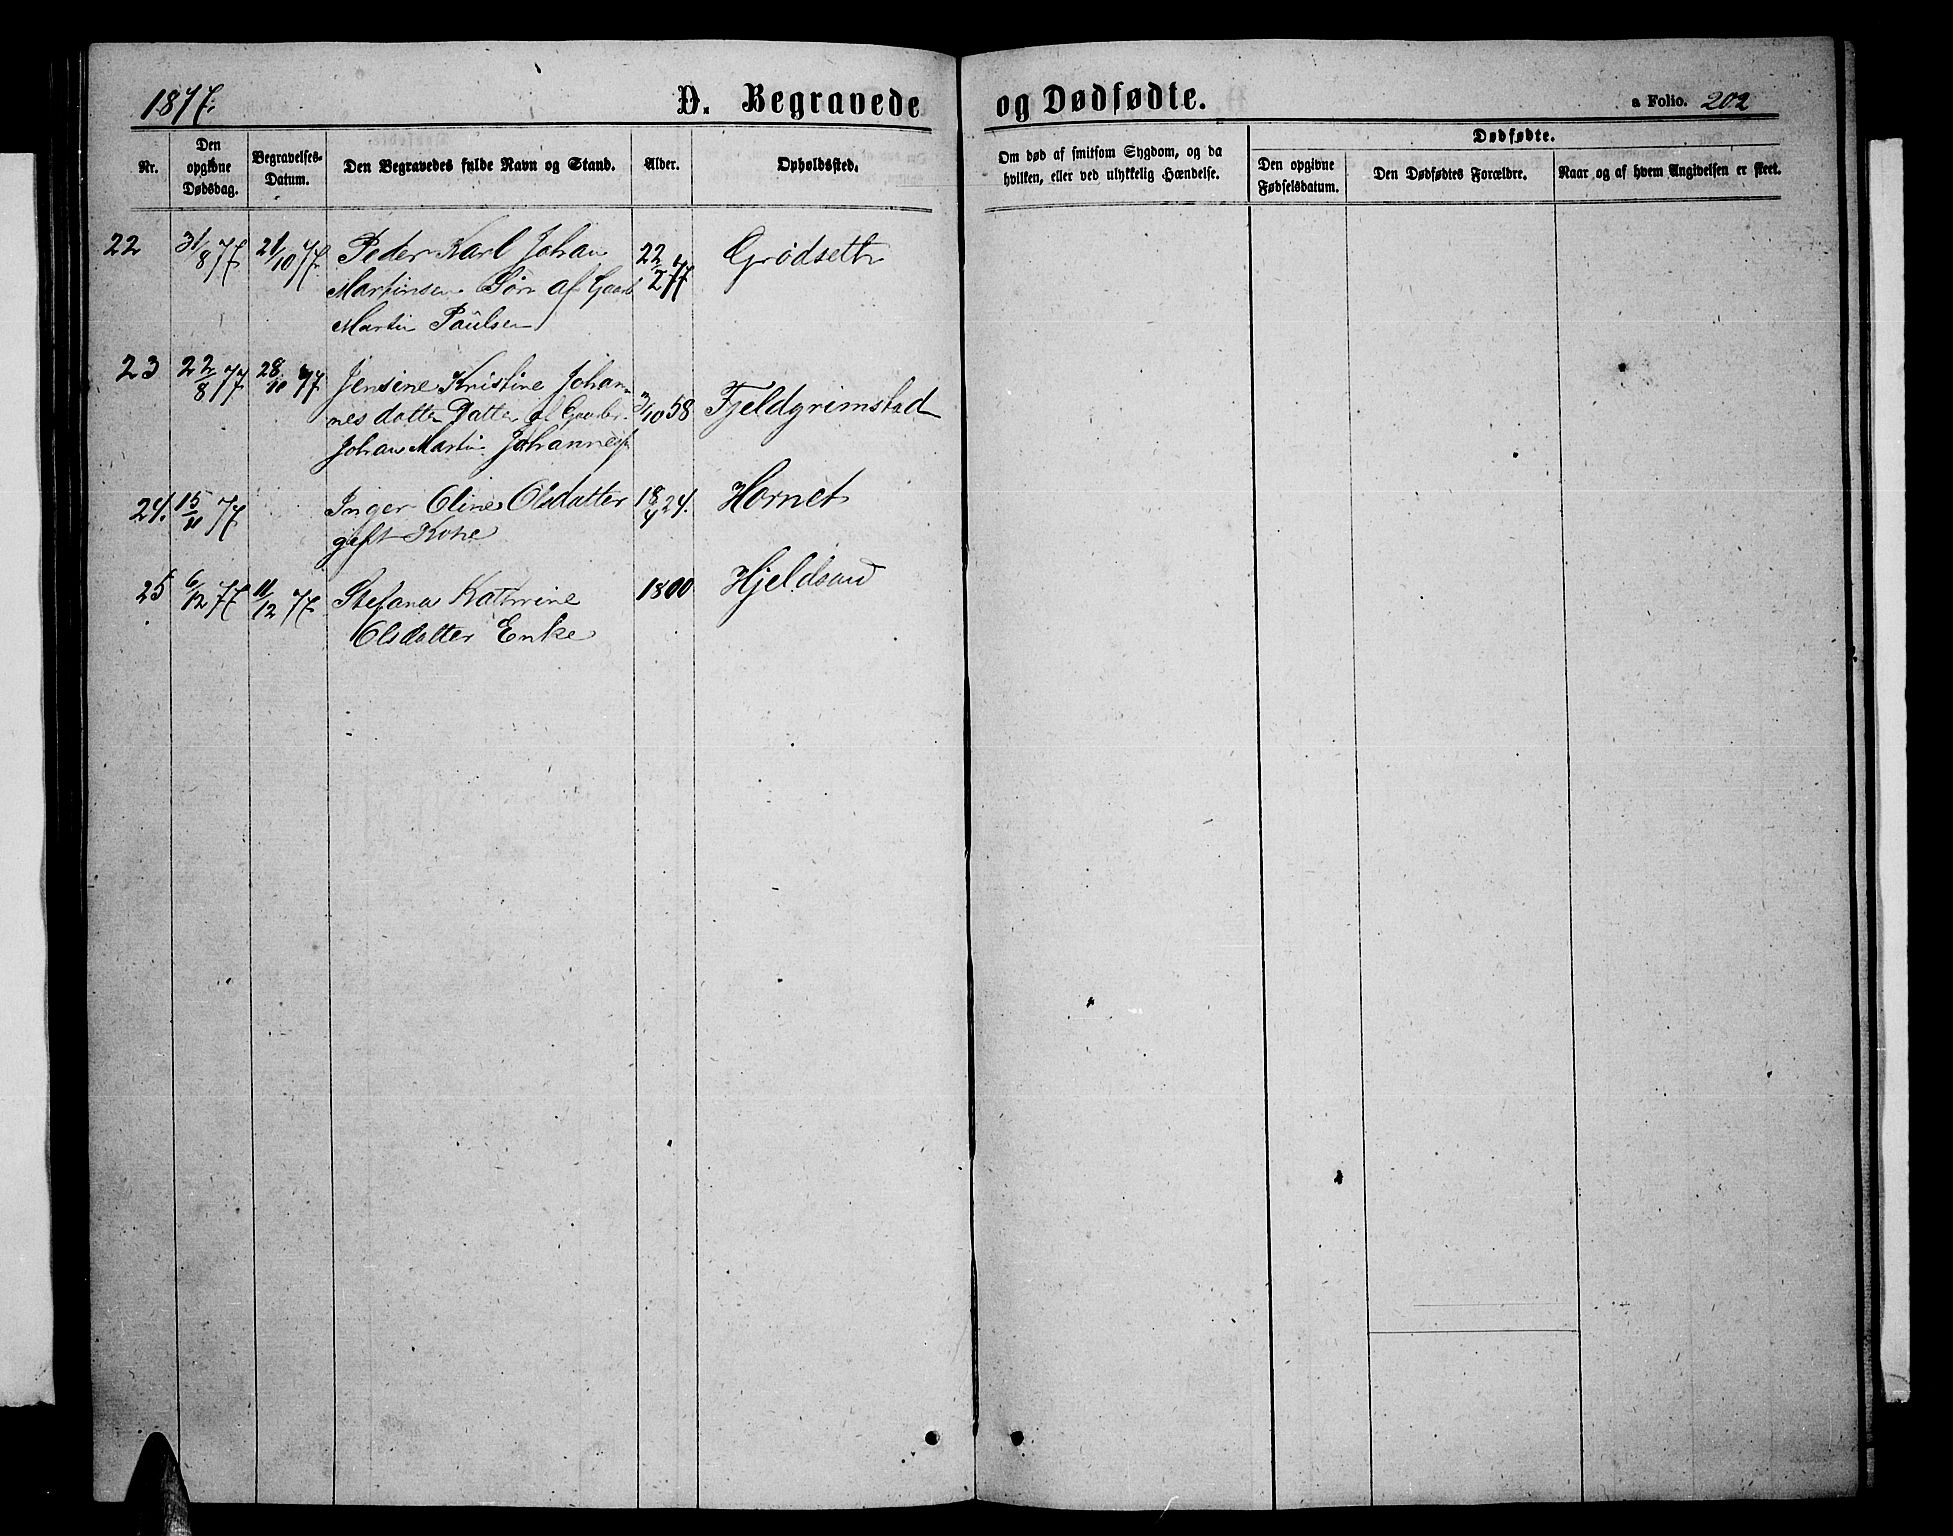 1877.
D. Begravede og Dødfødte.
a Folio. 202
Nr.
Den opgivne Dødsdag.
Begravelses-Datum.
Den Begravedes fulde Navn og Stand.
Alder.
Opholdssted.
Om død af smitsom Sygdom, og da hvilken, eller ved ulykkelig Hændelse.
Dødfødte.
Den opgivne Fødselsdatum.
Den Dødfødtes Forældre.
Naar og af hvem Angivelsen er skeet.
22 31/8 77 21/10 77. Peder Karl Johan 22/2 77 Grødseth
Martinsen Søn af Gaarb
Martin Paulsen
23 22/8 77 28/10 77 Jensine Kristine Johan-
nesdatter Datter af Gaarbr 3/10 58 Fjeldgrimstad
Johan Martin Johannes
24. 15/11 77 Inger Oline Olsdatter 18/4 24. Hornet
gift Kone
25 6/12 77 11/12 77. Stefana Kathrine 1800 Hjeldsand
Olsdatter Enke